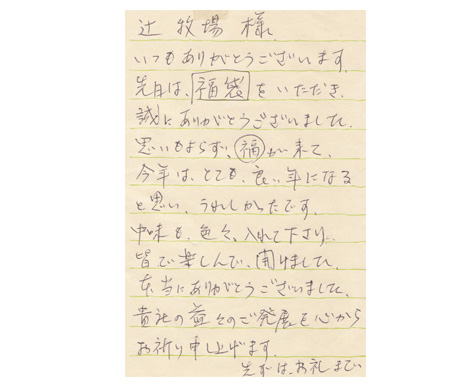 辻牧場様
いつもありがとうございます.
先日は、福袋をいただき.
誠にありがとうございました.
思いもよらず、福が来て、
今年は、とても、良い年になる
と思い、うれしかったです.
中味も、色々、入れて下さり.
皆で楽しんで、開けました.
本当にありがとうございました.
貴社の益々のご発展を心から
お祈り申し上げます.
先ずは、お礼まで